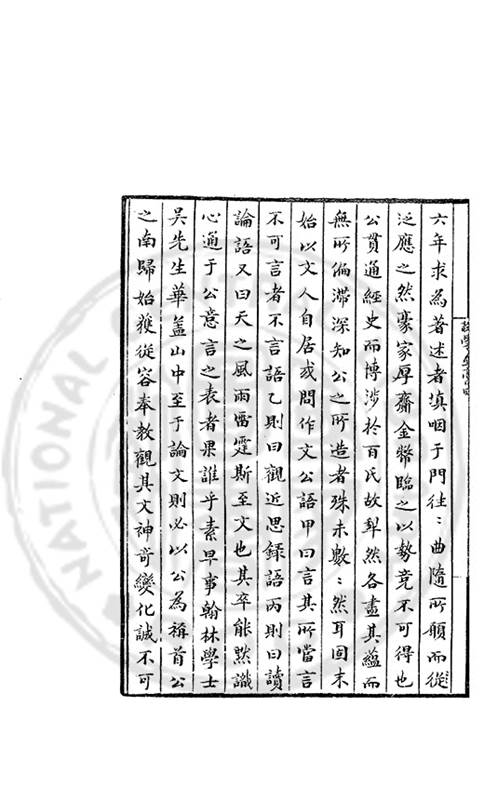 六年求為著述者填咽于門往〻曲隨所願而從
泛應之然豪家厚齎金幣臨之以勢竟不可得也
公貫通經史而博涉於百氏故犁然各盡其蘊而
無所偏滯深知公之所造者殊未數〻然耳固未
始以文人自居或問作文公語甲曰言其所當言
不可言者不言語乙則曰觀近思錄語丙則曰讀
論語又曰天之風雨雷霆斯至文也其卒能默識
心通于公意言之表者果誰乎素早事翰林學士
吳先生華盖山中至于論文則必以公為稱首公
之南歸始獲從容奉教觀其文神竒變化誠不可
NATIONAL